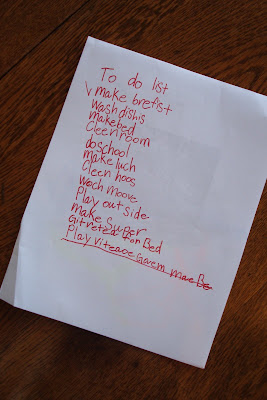 To do list
√ make brefist
wash dishis
make bed
cleen room
do school
make luch
cleen hoos
woch moove
Play out side
make Super
Gitreted For Bed
Play viteaoe Gavem mae Be